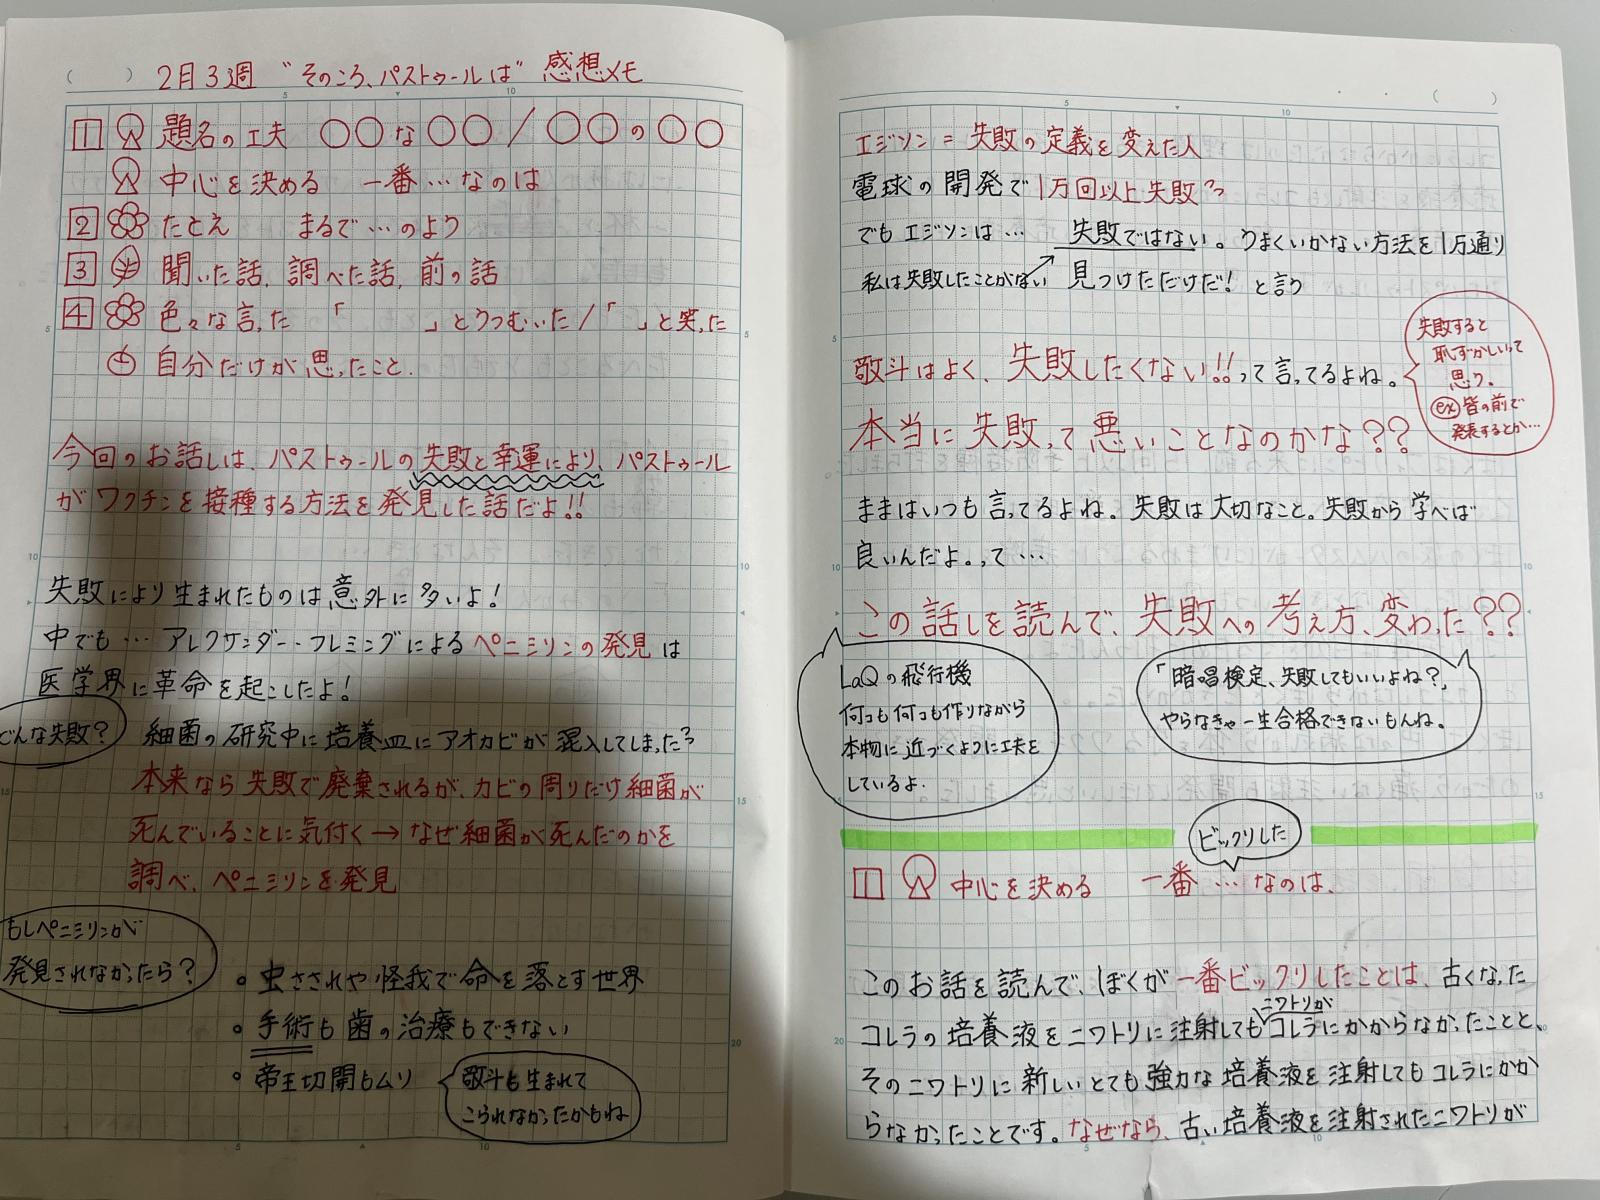 ( ) 2月3週 “そのころ、パストゥールは” 感想メモ
1 題名の工夫 ○○な○○/○○の○○
中心を決める 一番…なのは
2 たとえ まるで…のよう
3 聞いた話、調べた話、前の話
4 色々な言った 「 」とうつむいた/「 」と笑った
自分だけが思ったこと.
今回のお話しは、パストゥールの失敗と幸運により、パストゥール
がワクチンを接種する方法を発見した話だよ!!
失敗により生まれたものは意外に多いよ!
中でも… アレクサンダー・フレミングによるペニシリンの発見は
医学界に革命を起こしたよ!
どんな失敗?
細菌の研究中に培養皿にアオカビが混入してしまった
本来なら失敗で廃棄されるが、カビの周りだけ細菌が
死んでいることに気付く→なぜ細菌が死んだのかを
調べ、ペニシリンを発見
もしペニシリンが
発見されなかったら?
• 虫さされや怪我で命を落とす世界
• 手術も歯の治療もできない
• 帝王切開もムリ
敬斗も生まれて
こられなかったかもね
( )
エジソン=失敗の定義を変えた人
電球の開発で1万回以上失敗
でもエジソンは… 失敗ではない。うまくいかない方法を1万通り
私は失敗したことがない 見つけただけだ!と言う
失敗すると
恥ずかしいって
思う。
ex 皆の前で
発表するとか…
敬斗はよく、失敗したくない!!って言ってるよね。
本当に失敗って悪いことなのかな??
ままはいつも言ってるよね。失敗は大切なこと。失敗から学べば
良いんだよ。って…
この話しを読んで、失敗への考え方、変わった??
LaQの飛行機
何コも何コも作りながら
本物に近づくように工夫を
しているよ.
「暗唱検定、失敗してもいいよね?」
やらなきゃ一生合格できないもんね。
ビックリした
1 中心を決める 一番…なのは、
このお話を読んで、ぼくが一番ビックリしたことは、古くなった
ニワトリが
コレラの培養液をニワトリに注射してもコレラにかからなかったことと、
そのニワトリに新しいとても強力な培養液を注射してもコレラにかか
らなかったことです。なぜなら、古い培養液を注射されたニワトリが